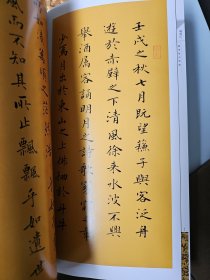 壬戌之秋七月既望蘇子與客泛舟
遊於赤壁之下清風徐来水波不興
舉酒屬客誦明月之詩歌窈窕
少焉月出於東山之上徘徊於斗牛
萬頃之茫然
風而不知其所止飄飄乎如遺世